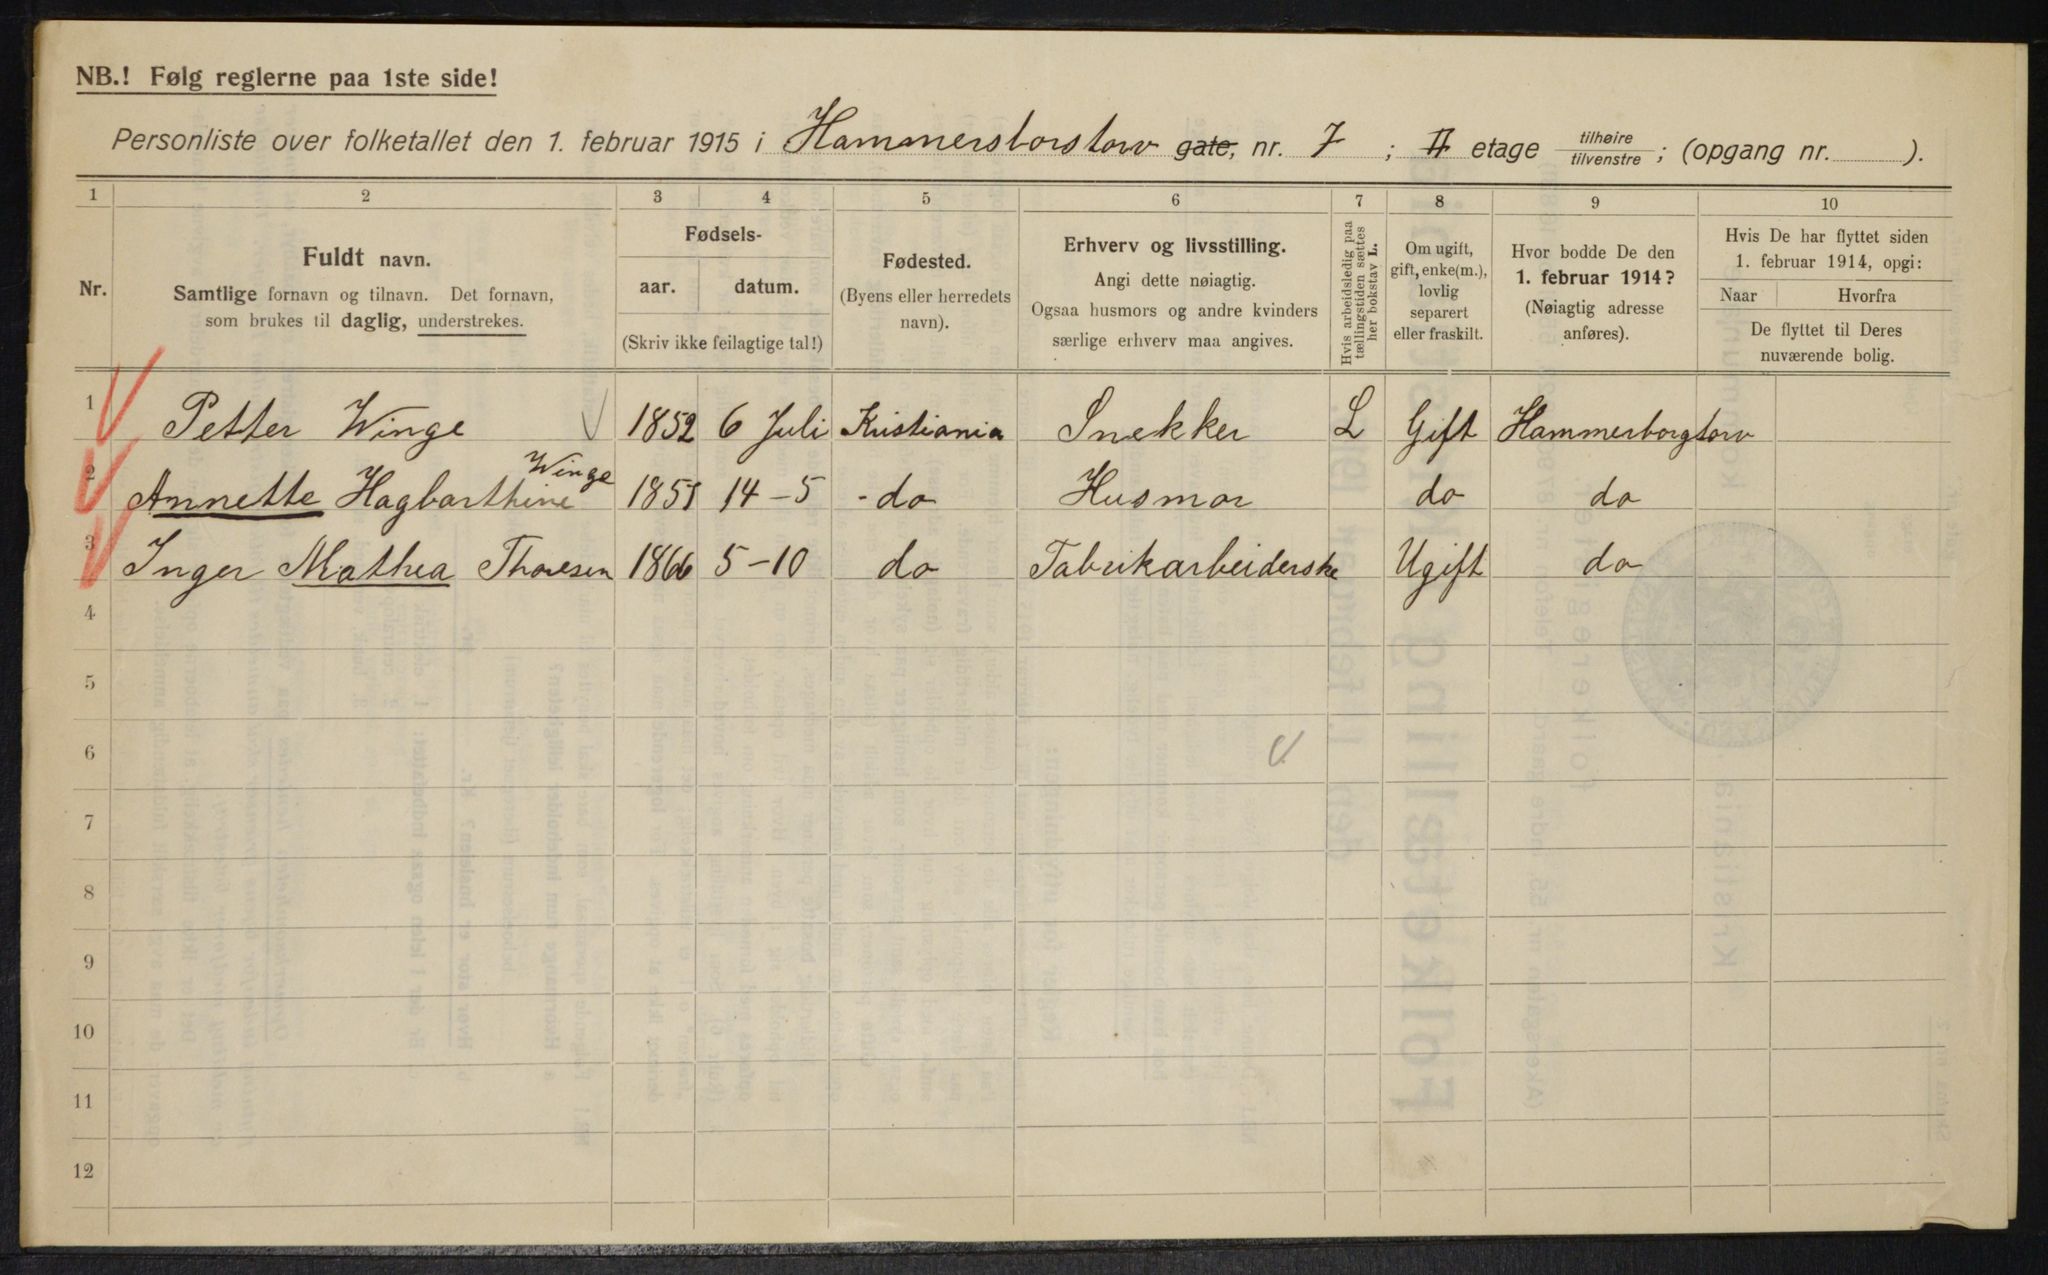 NB.! Følg reglerne paa 1ste side!
Personliste over folketallet den 1. februar 1915 i Hammersborstorv gate, nr. 7 ; II etage tilhøire tilvenstre ; (opgang nr. ).
1 2 3 4 5 6 7 8 9 10
Nr.
Fuldt navn.
Samtlige fornavn og tilnavn. Det fornavn,
som brukes til daglig, understrekes.
Fødsels-
aar. datum.
(Skriv ikke feilagtige tal!)
Fødested.
(Byens eller herredets
navn).
Erhverv og livsstilling.
Angi dette nøiagtig.
Ogsaa husmors og andre kvinders
særlige erhverv maa angives.
Hvis arbeidsledig paa
tællingstiden sættes
her bokstav L.
Om ugift,
gift, enke(m.),
lovlig
separert
eller fraskilt.
Hvor bodde De den
1. februar 1914?
(Nøiagtig adresse
anføres).
Hvis De har flyttet siden
1. februar 1914, opgi:
Naar Hvorfra
De flyttet til Deres
nuværende bolig.
1 Petter Winge 1852 6 Juli Kristiania Snekker L Gift Hammerborgtorv
2 Annette Hagbarthine Winge 1851 14-5 - do Husmor do do
3 Inger Mathea Thoresen 1866 5-10 do Fabrikarbeiderske Ugift do
4
5
6
7
8
9
10
11
12